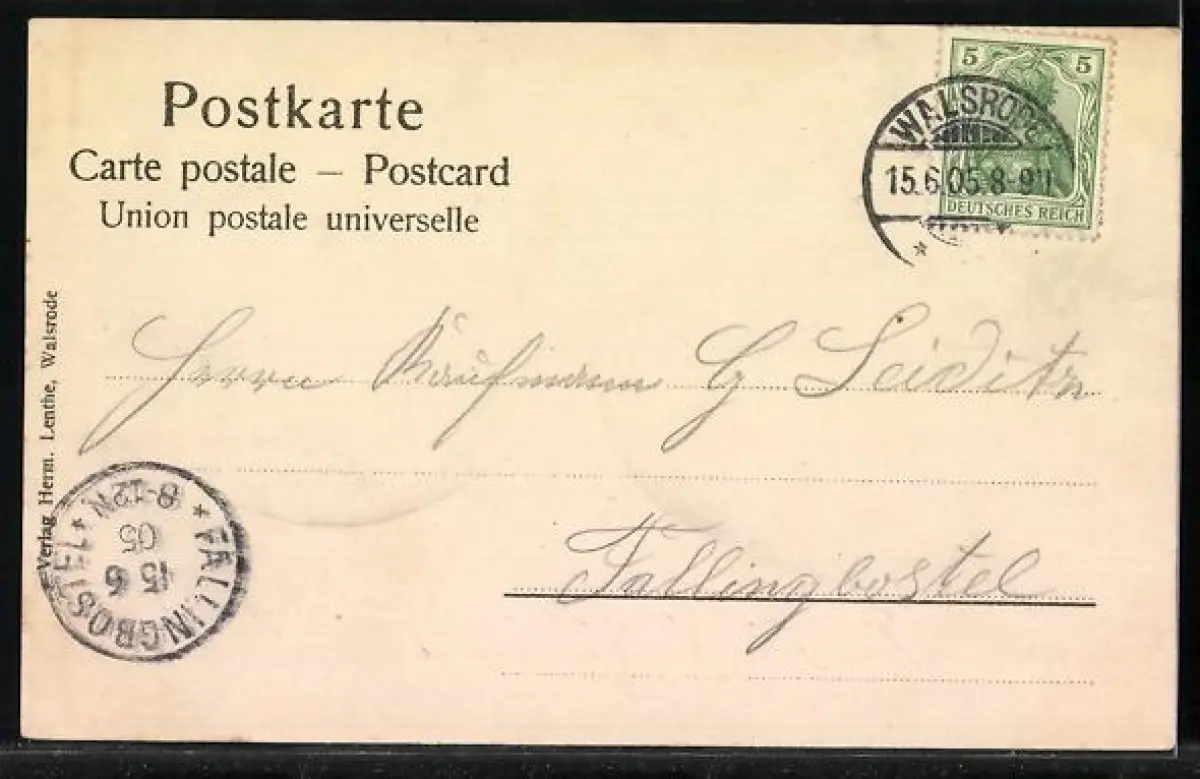 Postkarte
Carte postale – Postcard
Union postale universelle
5 5
DEUTSCHES REICH
WALSRODE
15.6.05.8-9N.
Herrn Kaufmann G
Fallingbostel
Verlag Herm. Lenthe, Walsrode
* FALLINGBOSTEL *
15 6
05
8-12N